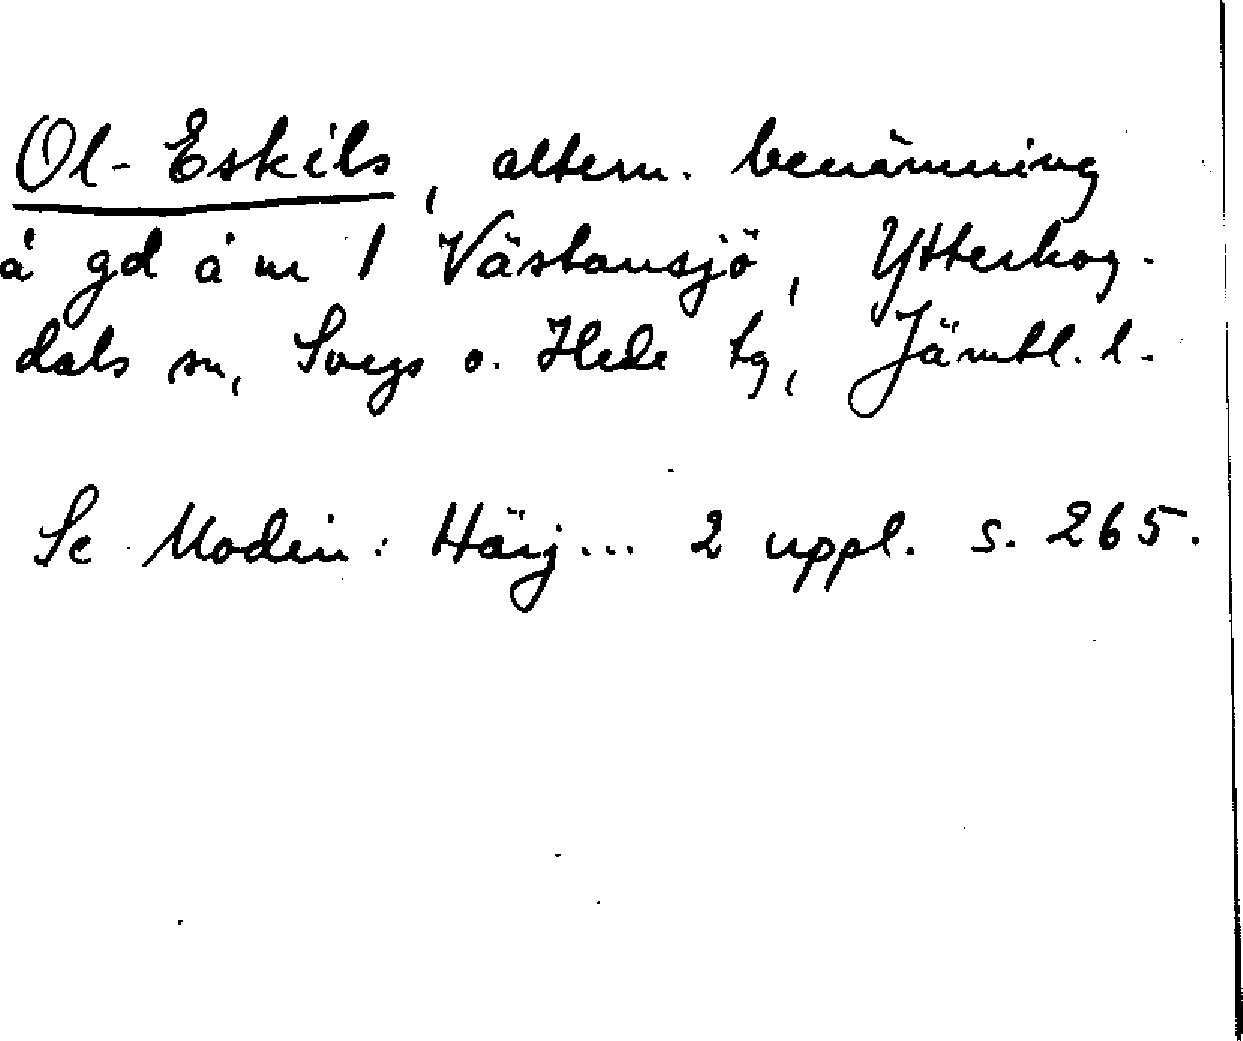 Ol-Eskils, altern. benämning
å gd å nr 1 Västansjö, Ytterhog-
dals sn, Svegs o. Hede tg, Jämtl. l.
Se Modin: Härj... 2 uppl. s. 265.